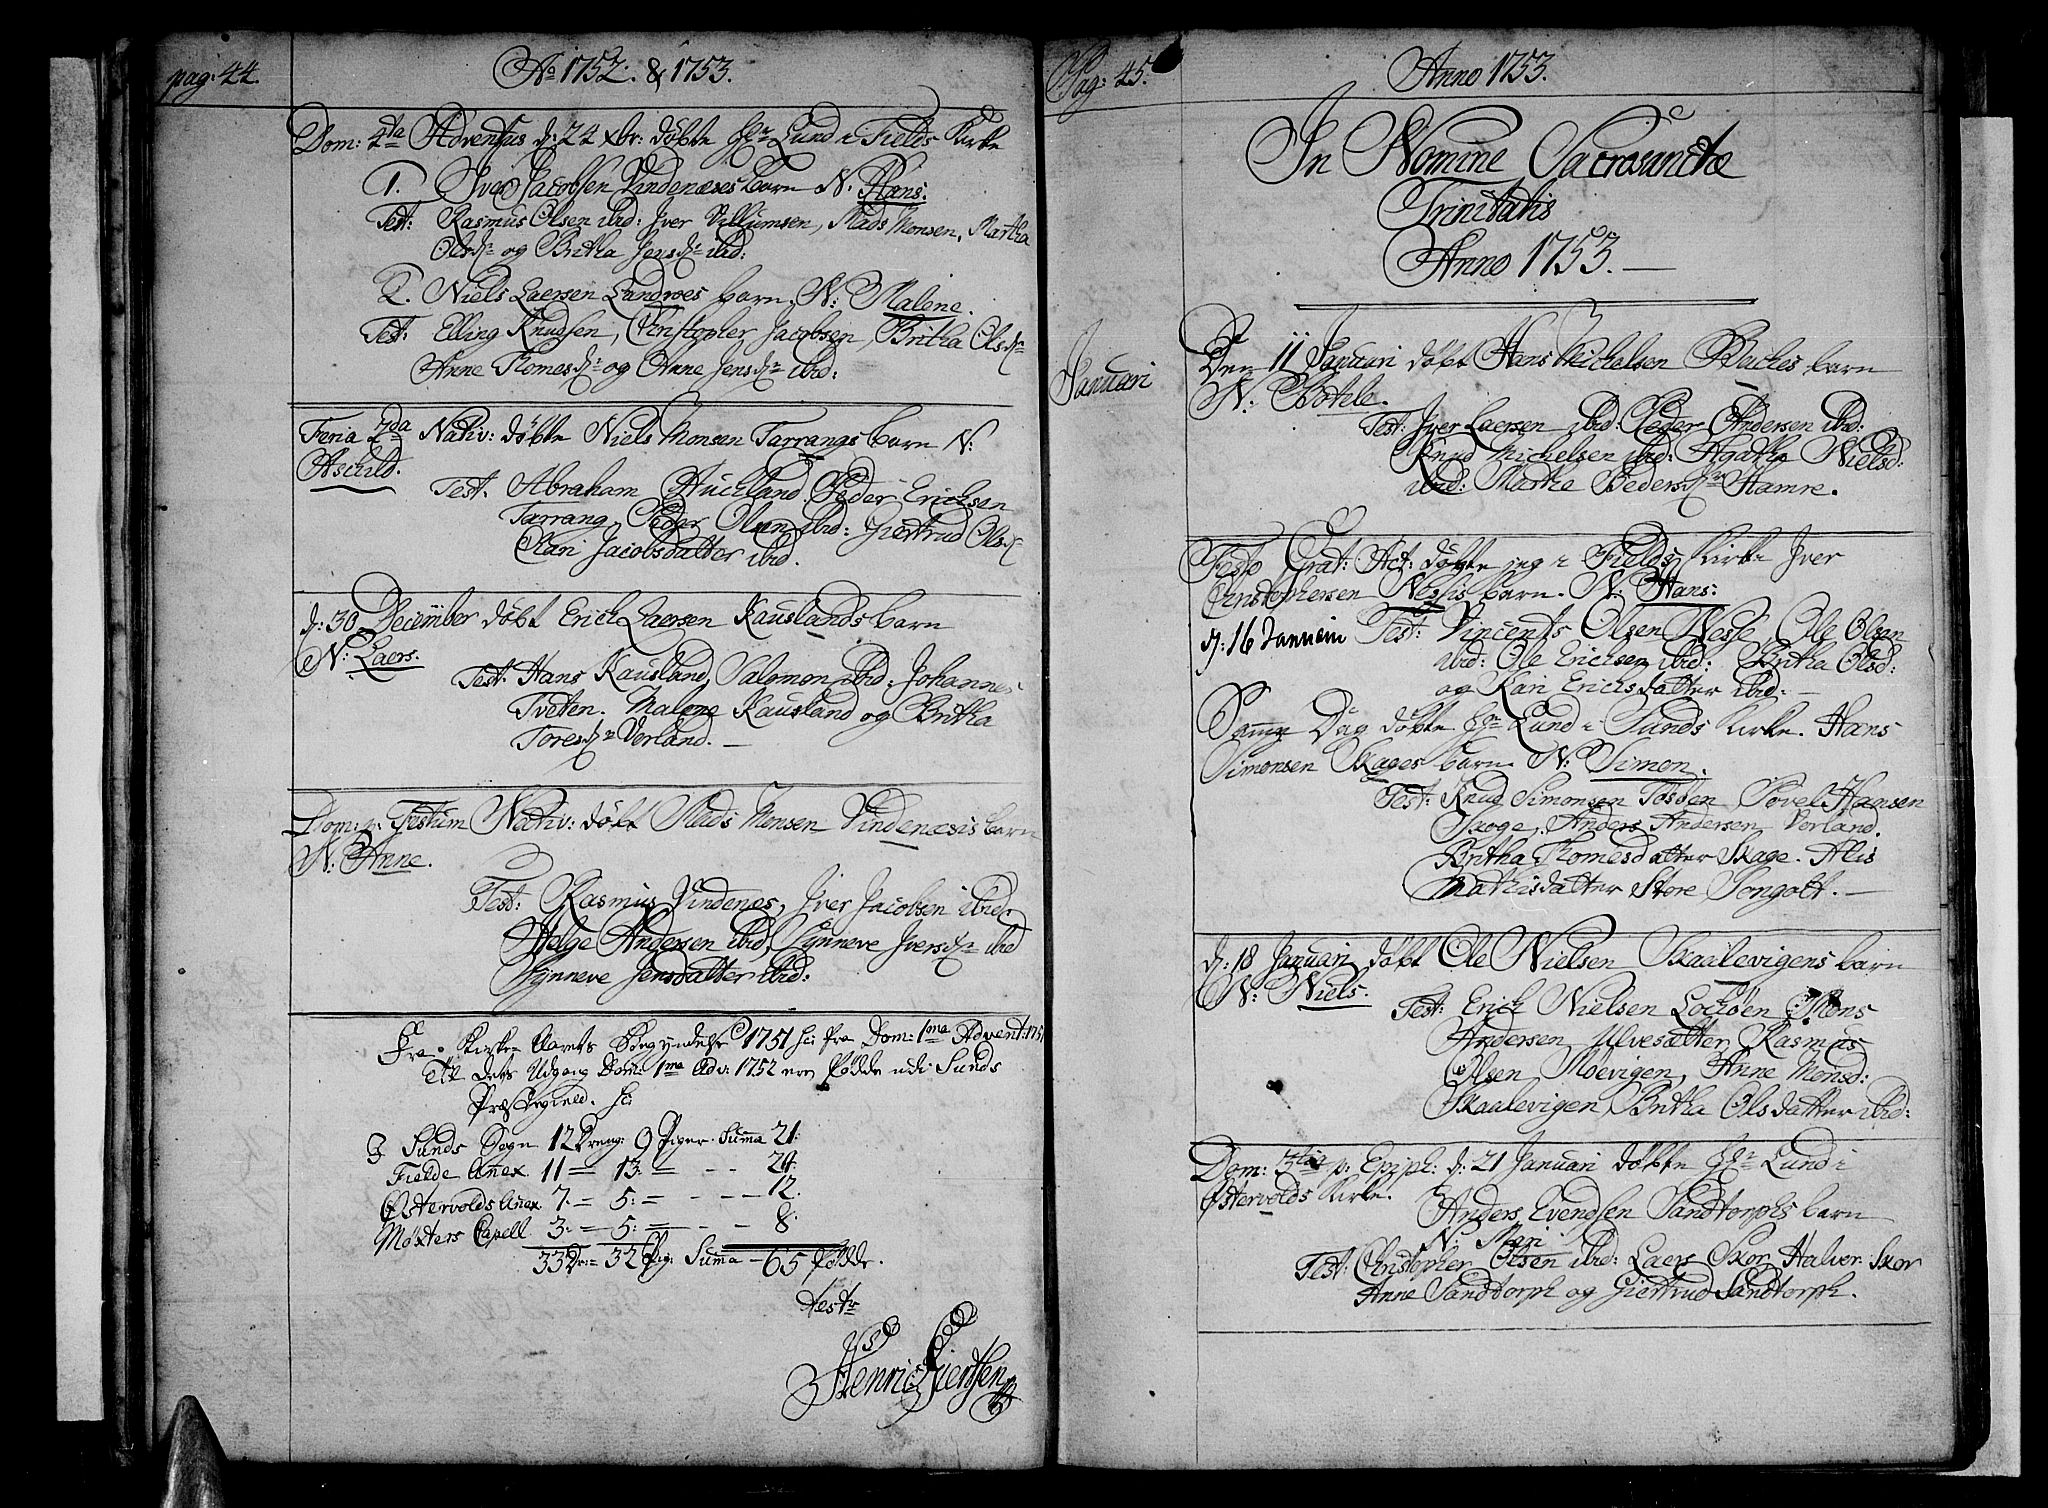 pag: 44.
Ao 1752. & 1753.
Dom: 4ta Adventus d: 24 xbr: døbte Hr Lund i Fields Kirke
1. Iver Jacobsen Vindenæses barn N: Hans.
Test: Rasmus Olsen ibid: Iver Villumsen, Mads Monsen, Martha
Olsdr og Britha Jensdr ibid:
2. Niels Laersen Landroes barn. N: Malene.
Test: Elling Knudsen, Christopher Jacobsen, Britha Olsdr
Anne Thomesdr og Anne Jensdr ibid:
Feria 2da Nativ: døbte Niels Monsen Tarrangs barn N:
Aschild.
Test. Abraham Huchland, Peder Ericksen
Tarrang, Peder Olsen ibid: Giertrud Olsd
Kari Jacobsdatter ibid.
d: 30 December døbt Erich Laersen Kauslands barn
N: Laers.
Test: Hans Kausland, Salomon ibid: Johannes
Tveten. Malene Kausland og Britha
Toresdr Vorland. —
Dom: p: Festum Nativ: døbt Mads Monsen Vindenæsis barn
N: Anne.
Test: Rasmus Vindenæs, Iver Jacobsen ibid:
Helge Andersen ibid, Synneve Iversdr ibid
Synneve Jensdatter ibid:
Fra Kirke Aarets Begyndelse 1751 sc: fra Dom: 1ma Advent: 1751
til dets Udgang Dom: 1ma Adv: 1752 ere fødde udi Sunds
Præstegield. sc:
I Sunds Sogn 12 Dreng: 9 Piger. Summa 21:
Fielde Anex. 11 = 13: = - - 24:
Østervolds Anex. 7. = 5: = - - - 12.
Møxters Capell 3: = 5: = - - 8:
33 Dr: = 32 Pig: Summa - 65 fødde.
test:
Henric Giertsen
Pag: 45.
Anno 1753.
In Nomine Sacrosanctæ
Trinitatis
Anno 1753. —
Januari
Den 11 Januari døbt Hans Michelsen Baches barn
N: Botele.
Test: Iver Laersen ibid: Peder Andersen ibid:
Knud Michelsen ibid: Agathe Nielsd:
ibid: Marthe Pedersdr Hamre.
Festo Grat: Act: døbte jeg i Fields Kirke Iver
Christophersen Nessis barn. N: Hans:
d: 16 Januarii Test: Vincents Olsen Nesse, Ole Olsen
ibid: Ole Erichsen ibid: Britha Olsd:
og Kari Erichsdatter ibid: —
Samme Dag døbte Hr Lund i Sunds Kirke. Hans
Simonsen Skages barn N: Simon.
Test: Knud Simonsen Tosøen Povel Hansen
Skoge, Anders Andersen Vorland.
Britha Thomesdatter Skage. Alis
Mathisdatter Store Songolt. —
d: 18 Januari døbt Ole Nielsen Skaalevigens barn
N: Niels.
Test: Erich Nielsen Lochøen Mons
Andersen Ulvesætter, Rasmus
Olsen Moevigen, Anne Monsd:
Skaalevigen, Britha Olsdatter ibid:
Dom: 3tia p: Epiph: d: 21 Januari døbte Hr Lund i
Østervolds Kirke.
Anders Evendsen Sandtorphs barn
N: Mari.
Test: Christopher Olsen ibid: Laers Skor, Halver Skor
Anne Sandtorph og Giertrud Sandtorph.